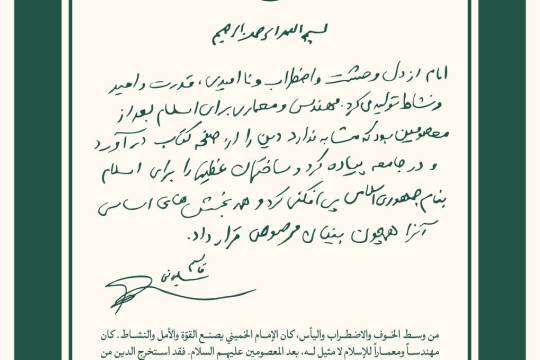 بسم الله الرحمن الرحیم
امام از دل وحشت و اضطراب و ناامیدی، قدرت و امید
و نشاط تولید می‌کرد. مهندس و معماری برای اسلام بعد از
معصومین بود که مشابه ندارد دین را از صفحه کتاب درآورد
و در جامعه پیاده کرد و ساختمان عظیمی را برای اسلام
بنام جمهوری اسلامی پی‌افکنی کرد و همه بخش‌های اساسی
آنرا همچون بنیان مرصوص قرار داد.
قاسم سلیمانی
من وسط الخوف والاضطراب واليأس، كان الإمام الخميني يصنع القوّة والأمل والنشاط. كان
مهندساً ومعماراً للإسلام لا مثيل له، بعد المعصومين عليهم السلام. فقد استخرج الدين من